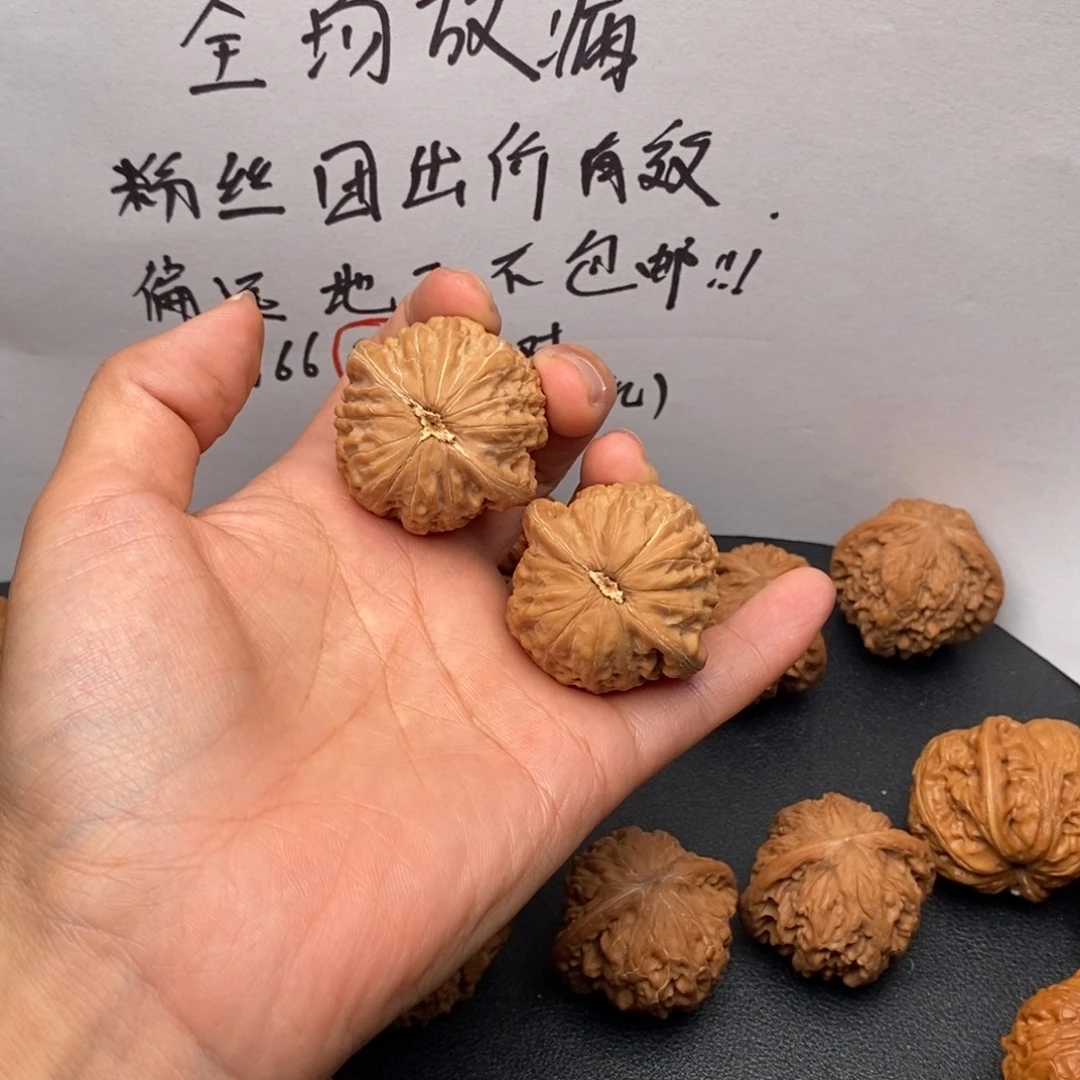 全场放漏
粉丝团出价有效.
偏远地 不包邮!!!
66
元)